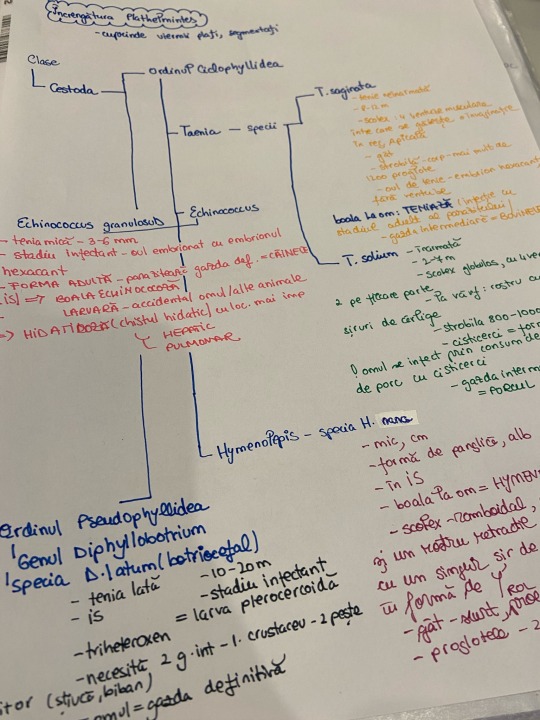 Încrengătura Plathelmintes
- cuprinde viermii plați, segmentați
Clase
Cestoda
Ordinul Ciclophyllidea
Taenia - specii
T. saginata
- tenie neînarmată
- 8-12m
- scolex: 4 ventuze musculare
între care se găsește o
în reg. Apicală
- gât
- strobila - corp - mai mult de
1200 proglote
- oul de tenie - embrion hexacant
fără ventuze
boala la om: TENIAZĂ (Infecție cu
stadiul adult al parazitului)
- gazda intermediară =
T. solium - înarmată
- 2-7m
- scolex globulos, cu
2 pe fiecare parte
- la vârf: rostru cu
șiruri de cârlige
- strobila 800-1000
- cisticerci =
omul se infect prin consum de
de porc cu cisticerci
- gazda interm
= PORCUL
Echinococcus
Echinococcus granulosus
- tenia mică - 3-6 mm
- stadiu infectant - oul embrionat cu embrionul
hexacant
- FORMA ADULTĂ - parazitează gazda def. = CÂINELE
is) => BOALA ECHINOCOCOZĂ
LARVARĂ - accidental omul/alte animale
=> HIDATIDOZĂ (chistul hidatic) cu loc. mai imp
HEPATIC
PULMONAR
Hymenolepis - specia H. nana
- mic, cm
- formă de panglică, alb
- în IS
- boala la om = HYMEN
- scolex - romboidal,
și un rostru retractil
cu un singur șir de
în formă de Y
- gât - scurt,
- proglotele - 2
Ordinul Pseudophyllidea
Genul Diphyllobotrium
specia D. latum (botriocefal)
- tenia lată
- 10-20m
- is
- stadiu infectant
= larva plerocercoidă
- triheteroxen
- necesită 2 g. int - 1. crustaceu - 2 pește
itor (știucă, biban)
omul = gazda definitivă